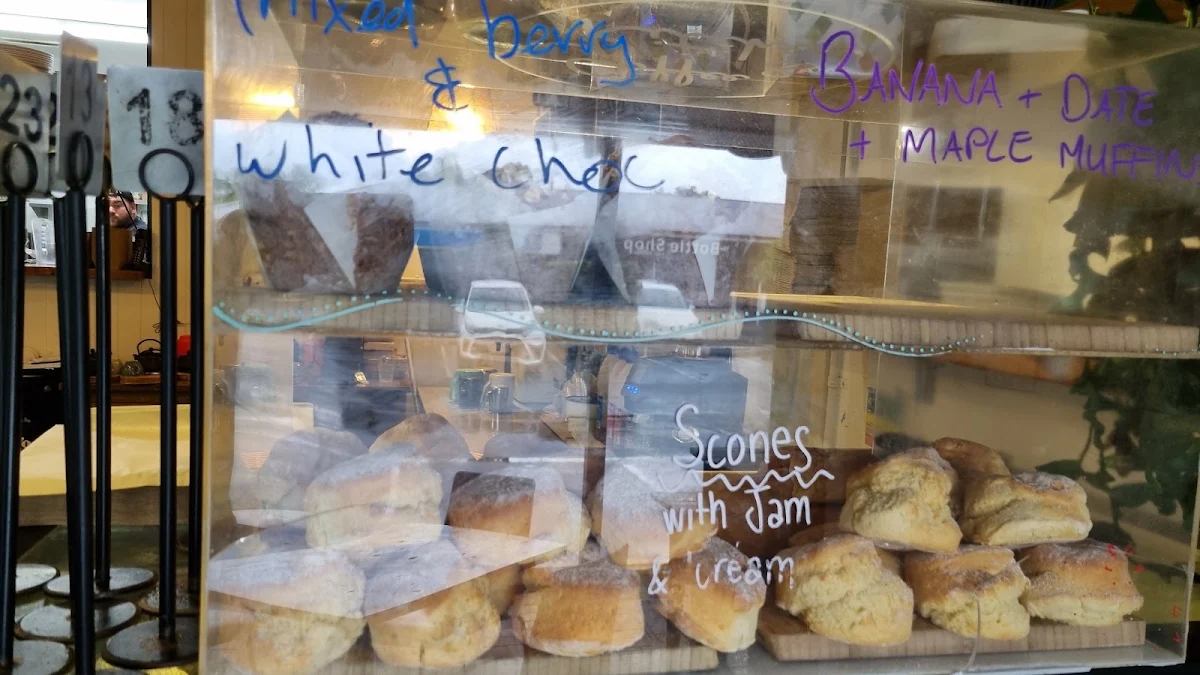 mixed berry
&
white choc
BANANA + DATE
+ MAPLE MUFFIN
23
13
18
Bottle Shop
Scones
with Jam
& cream